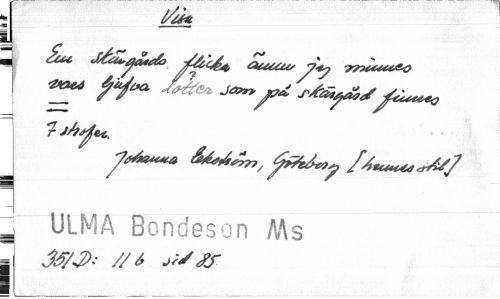 Visa
En skärgårds flicka ännu jag minnes
vars ljufva dotter som på skärgård finnes
?
7 strofer.
Johanna Eckström, Göteborg [hennes stil]
ULMA Bondeson Ms
351 D: 11 b sid 85.